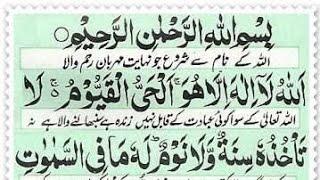 بِسْمِ اللّٰهِ الرَّحْمٰنِ الرَّحِيْمِ ○
اللہ کے نام سے شروع جو نہایت مہربان رحم والا
اَللّٰهُ لَاۤ اِلٰهَ اِلَّا هُوَ ۚ اَلْحَیُّ الْقَیُّوْمُ ۚ لَا
اللہ تعالیٰ کے سوا کوئی عبادت کے قابل نہیں زندہ ہے سنبھالنے والا ہے نہ
تَاْخُذُهٗ سِنَةٌ وَّلَا نَوْمٌ ؕ لَهٗ مَا فِی السَّمٰوٰتِ